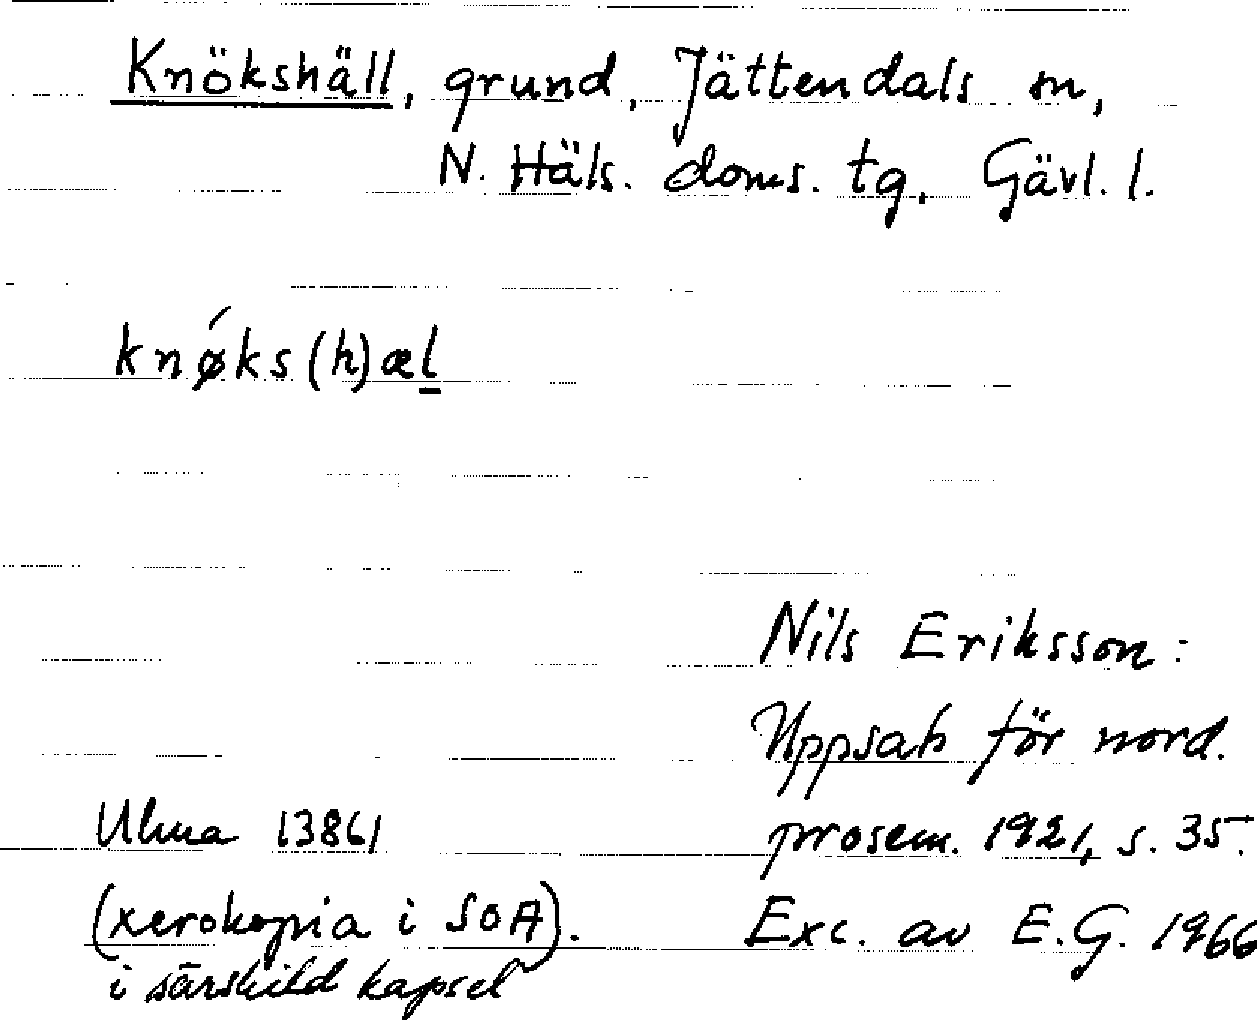 Knökshäll, grund, Jättendals sn,
N. Häls. doms. tg, Gävl. l.
knǿks(h)æl̲
Nils Eriksson:
Uppsats för nord.
Ulma 13861
prosem. 1921, s. 35.
(xerokopia i SOA).
Exc. av E.G. 1966
i särskild kapsel